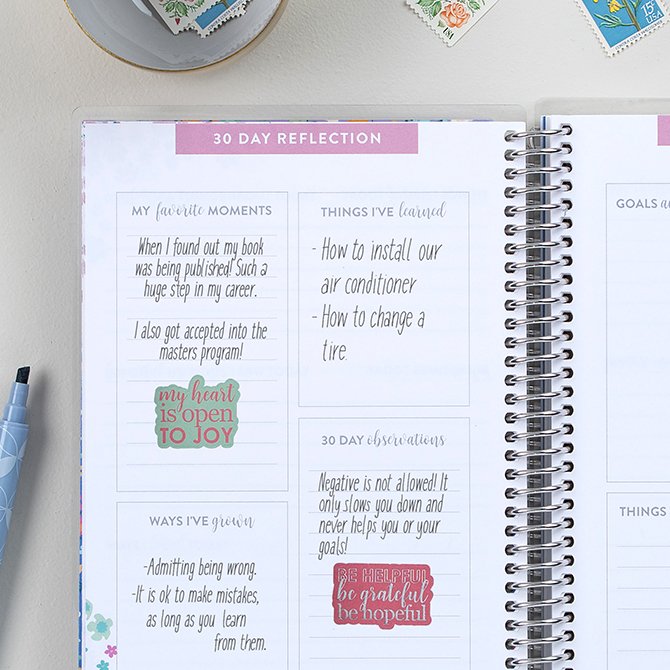 15c
USA
30 DAY REFLECTION
MY favorite MOMENTS
When I found out my book
was being published! Such a
huge step in my career.
I also got accepted into the
masters program!
my heart
is open
TO JOY
WAYS I'VE grown
-Admitting being wrong.
-It is ok to make mistakes,
as long as you learn
from them.
THINGS I'VE learned
- How to install our
air conditioner
- How to change a
tire.
30 DAY observations
Negative is not allowed! It
only slows you down and
never helps you or your
goals!
BE HELPFUL
be grateful
be hopeful
GOALS
THINGS